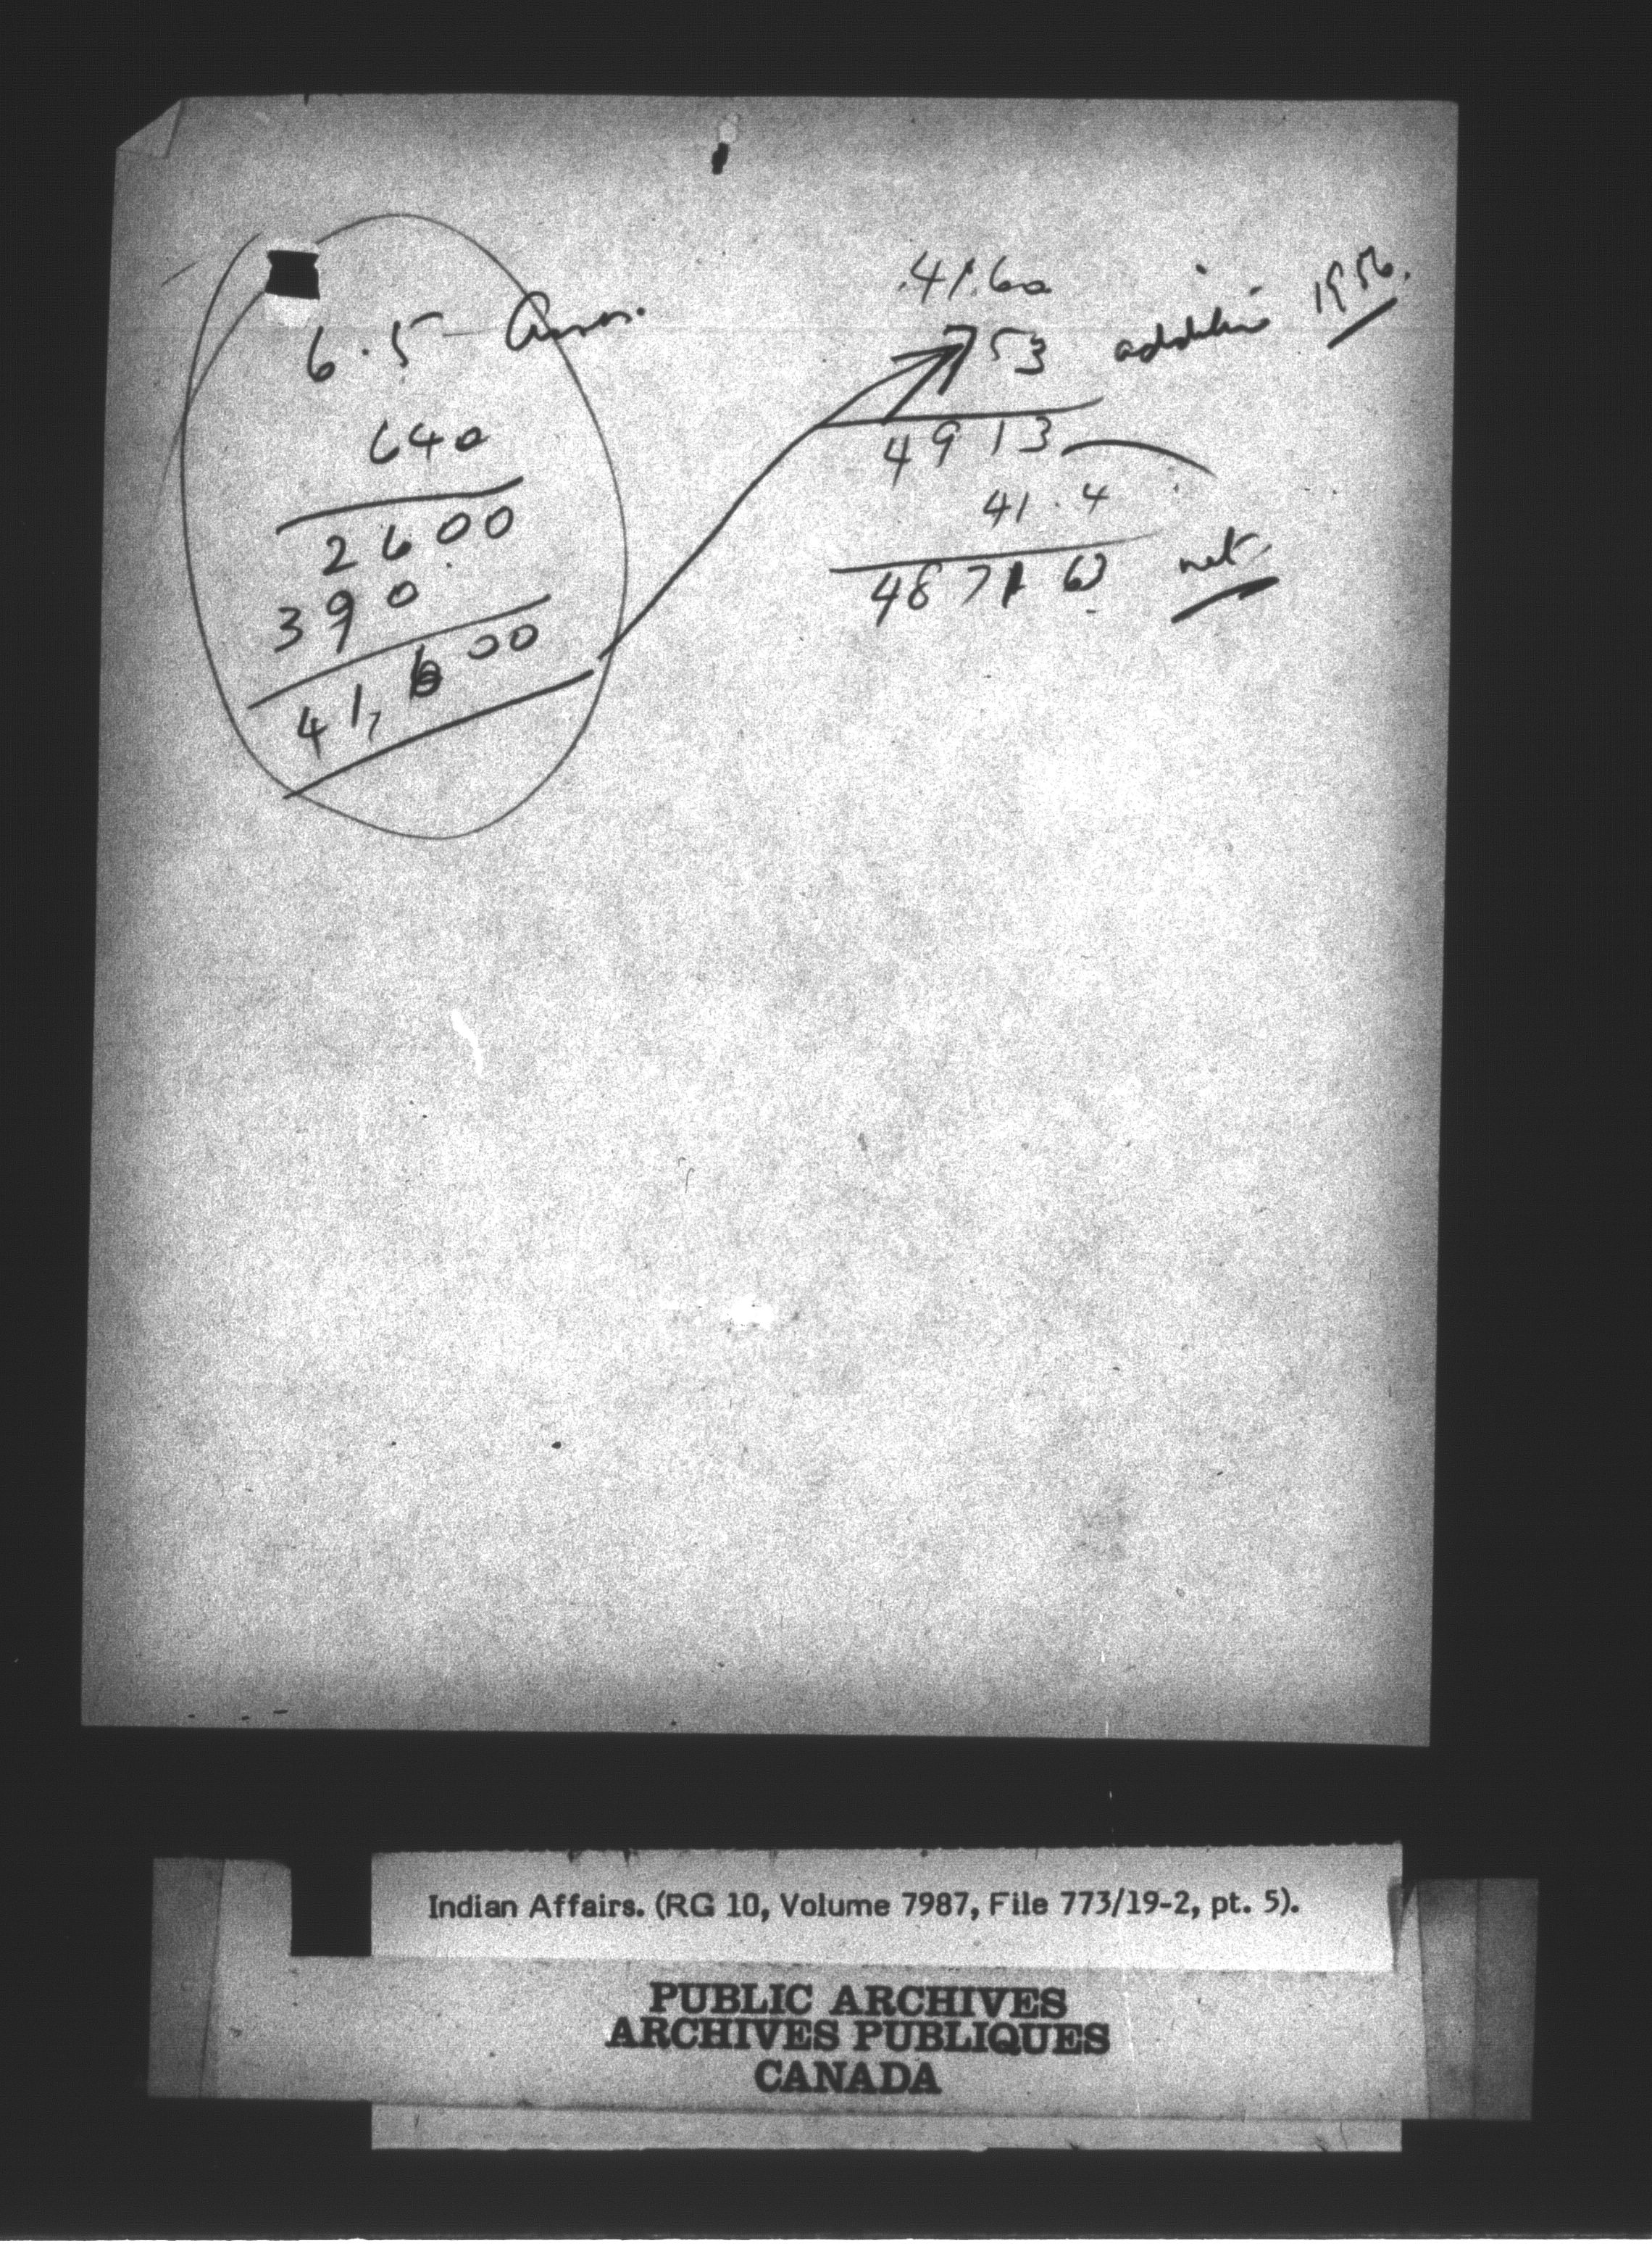 6.5
640
2600
390
41,600
4160
753 addition 1956.
4913
41.4
4871 6 net
Indian Affairs. (RG 10, Volume 7987, File 773/19-2, pt. 5).
PUBLIC ARCHIVES
ARCHIVES PUBLIQUES
CANADA